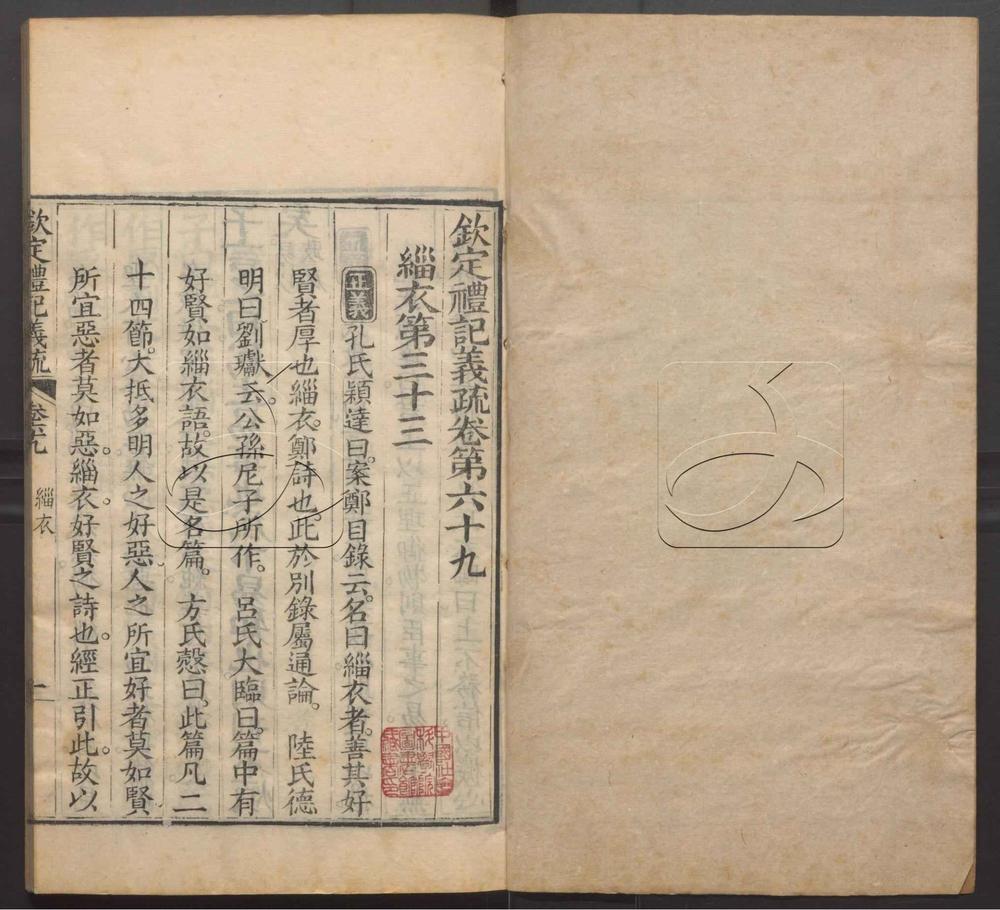 欽定禮記義疏卷第六十九
緇衣第三十三
正義 孔氏穎達曰案鄭目錄云名曰緇衣者善其好
賢者厚也緇衣鄭詩也此於別錄屬通論。 陸氏德
明曰劉瓛云公孫尼子所作。呂氏大臨曰篇中有
好賢如緇衣語故以是名篇。方氏慤曰此篇凡二
十四節大抵多明人之好惡人之所宜好者莫如賢
所宜惡者莫如惡。緇衣好賢之詩也。經正引此。故以
欽定禮記義疏
卷六十九
緇衣
一